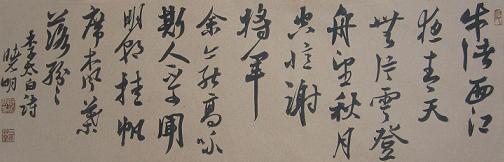 牛渚西江
夜青天
無片雲登
舟望秋月
空憶謝
将军
余亦能高咏
斯人不可闻
明朝挂帆
席枫叶
落纷々
李太白诗
晓明